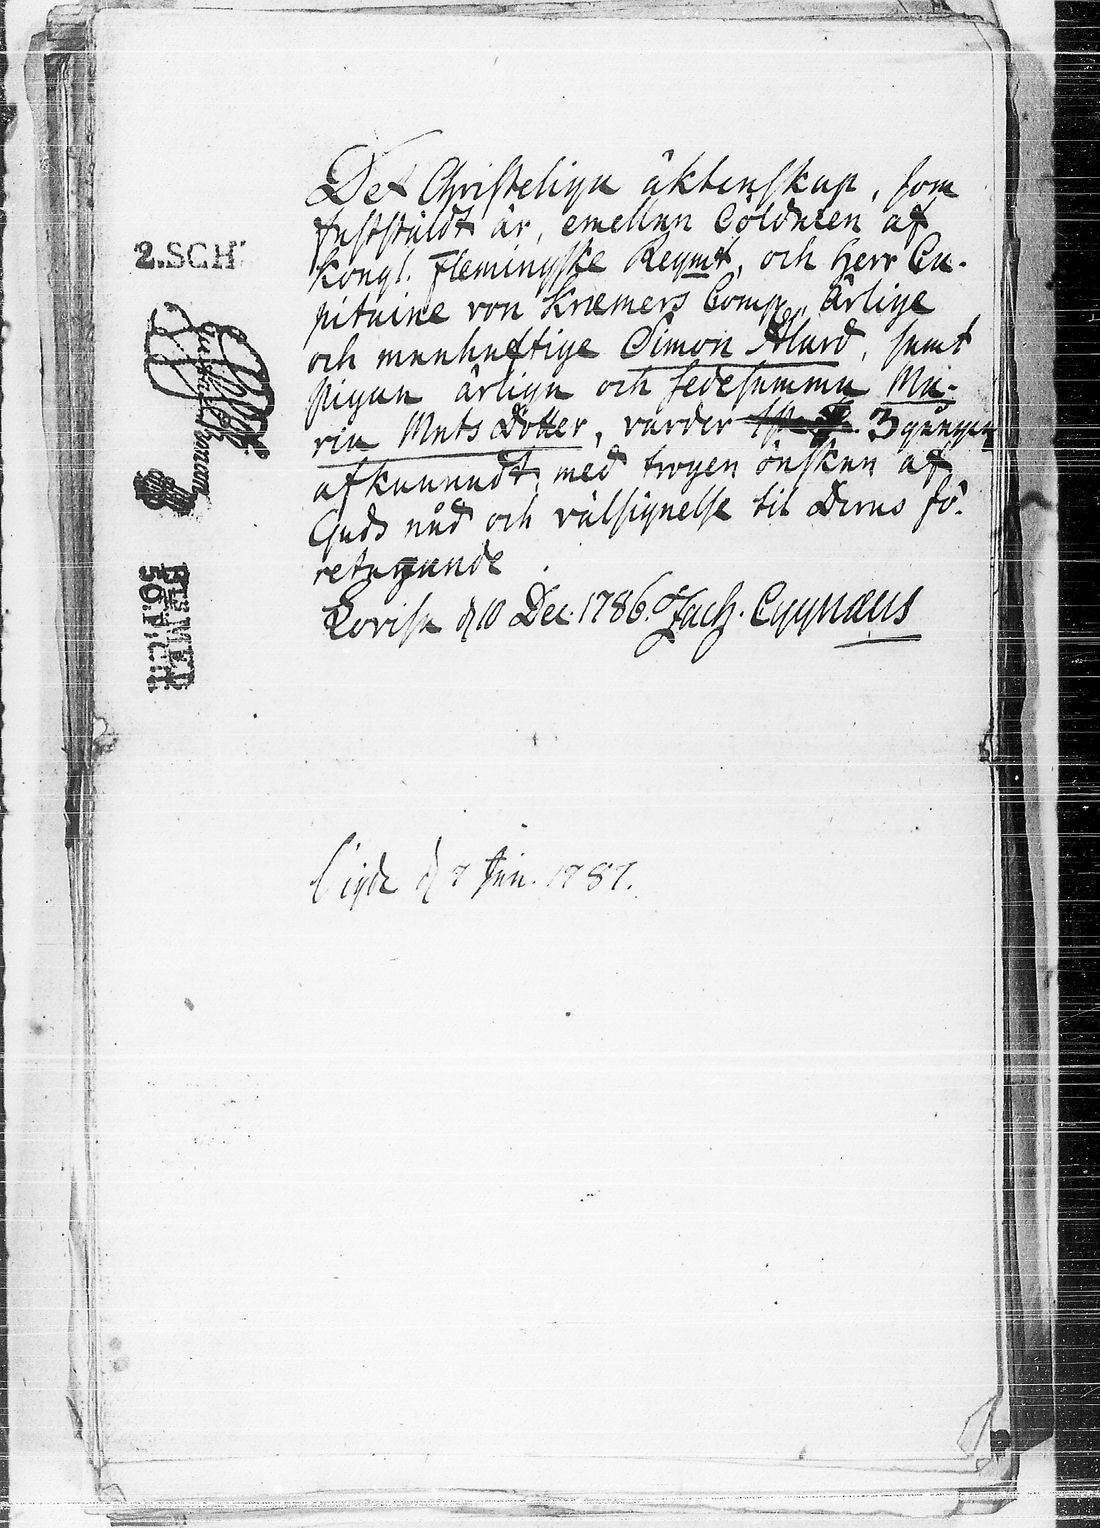 Det Christeliga äktenskap, som
fastställdt är, emellan Soldaten af
Kongl. Flemingske Regmt, och Herr Ca-
pitaine von Kræmers Comp., ärlige
och manhaftige Simon Alard, samt
pigan ärliga och sedesamma Ma-
ria Mats Dotter, varder 3 gången
afkunnadt, med trogen önskan af
Guds nåd och välsignelse til Deras fö-
retagande
Lovisa d 10 Dec. 1786. Zach. Cygnæus
Vigde d 7 Jan. 1787.
2.SCH